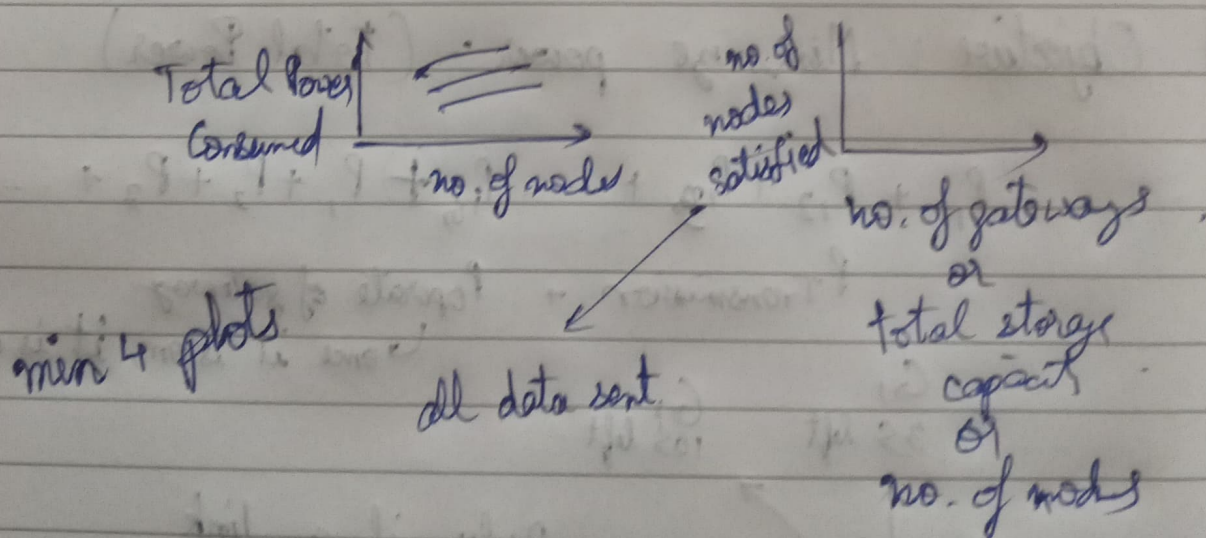 Total Power
Consumed
no. of nodes
no. of
nodes
satisfied
no. of gateways
or
total storage
capacity
or
no. of nodes
min 4 plots
all data sent